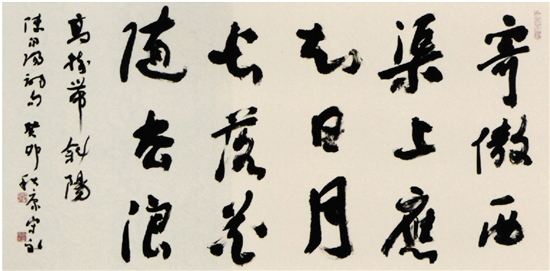 寄傲西
渠上應
知日月
長落花
随去浪
高樹帶斜陽
陳白陽詩句 癸卯